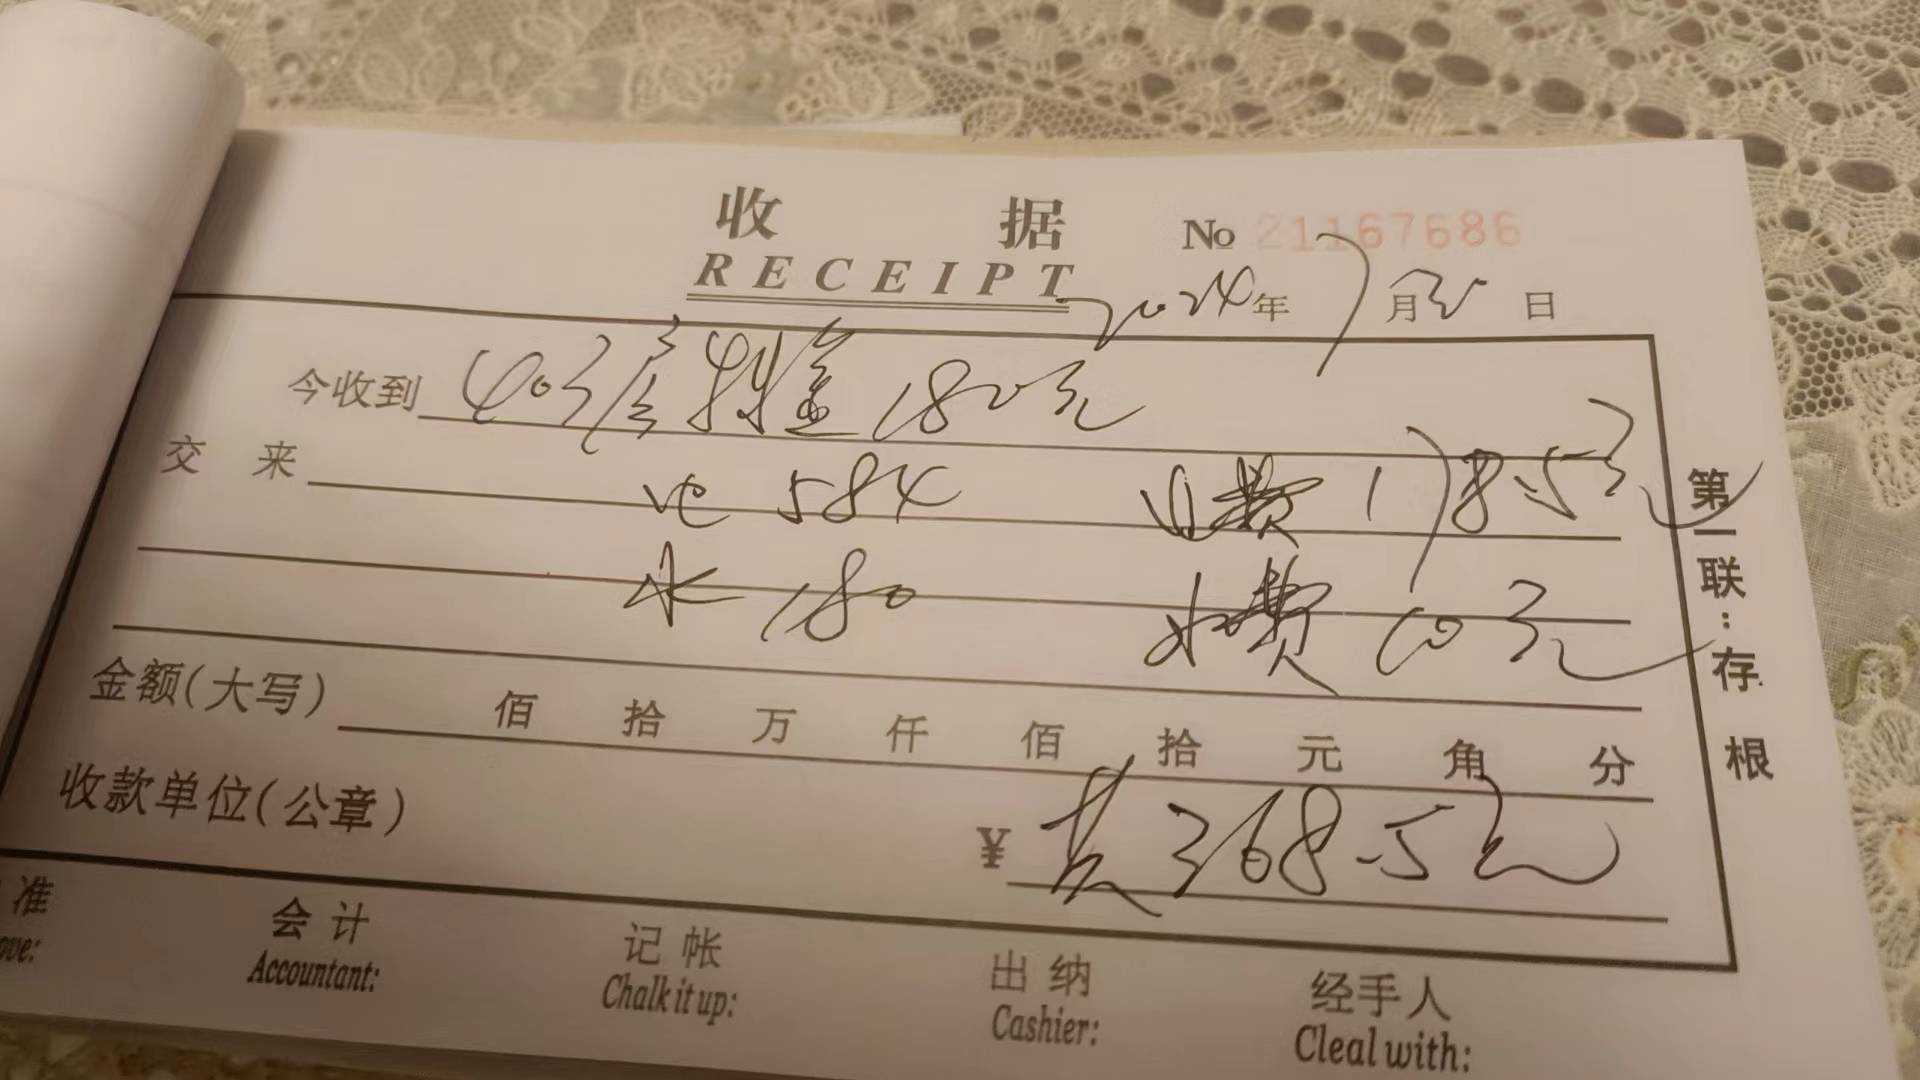 收 据
No 21167686
RECEIPT
2024年7月30日
今收到 403房押金180元
交 来 电 584 电费 178.5元
水 180 水费 10元
金额(大写) 佰 拾 万 仟 佰 拾 元 角 分
收款单位(公章) ¥ 共368.5元
准 会计 记帐 出纳 经手人
ove: Accountant: Chalk it up: Cashier: Cleal with:
第一联：存根